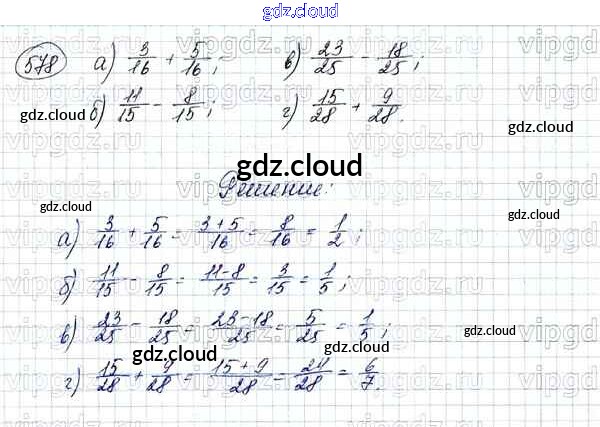 gdz.cloud
578 а) 3/16 + 5/16; в) 23/25 - 18/25;
б) 11/15 - 8/15; г) 15/28 + 9/28.
gdz.cloud
gdz.cloud
gdz.cloud
Решение:
gdz.cloud
gdz.cloud
а) 3/16 + 5/16 = 3+5/16 = 8/16 = 1/2;
б) 11/15 - 8/15 = 11-8/15 = 3/15 = 1/5;
в) 23/25 - 18/25 = 23-18/25 = 5/25 = 1/5;
gdz.cloud
gdz.cloud
г) 15/28 + 9/28 = 15+9/28 = 24/28 = 6/7.